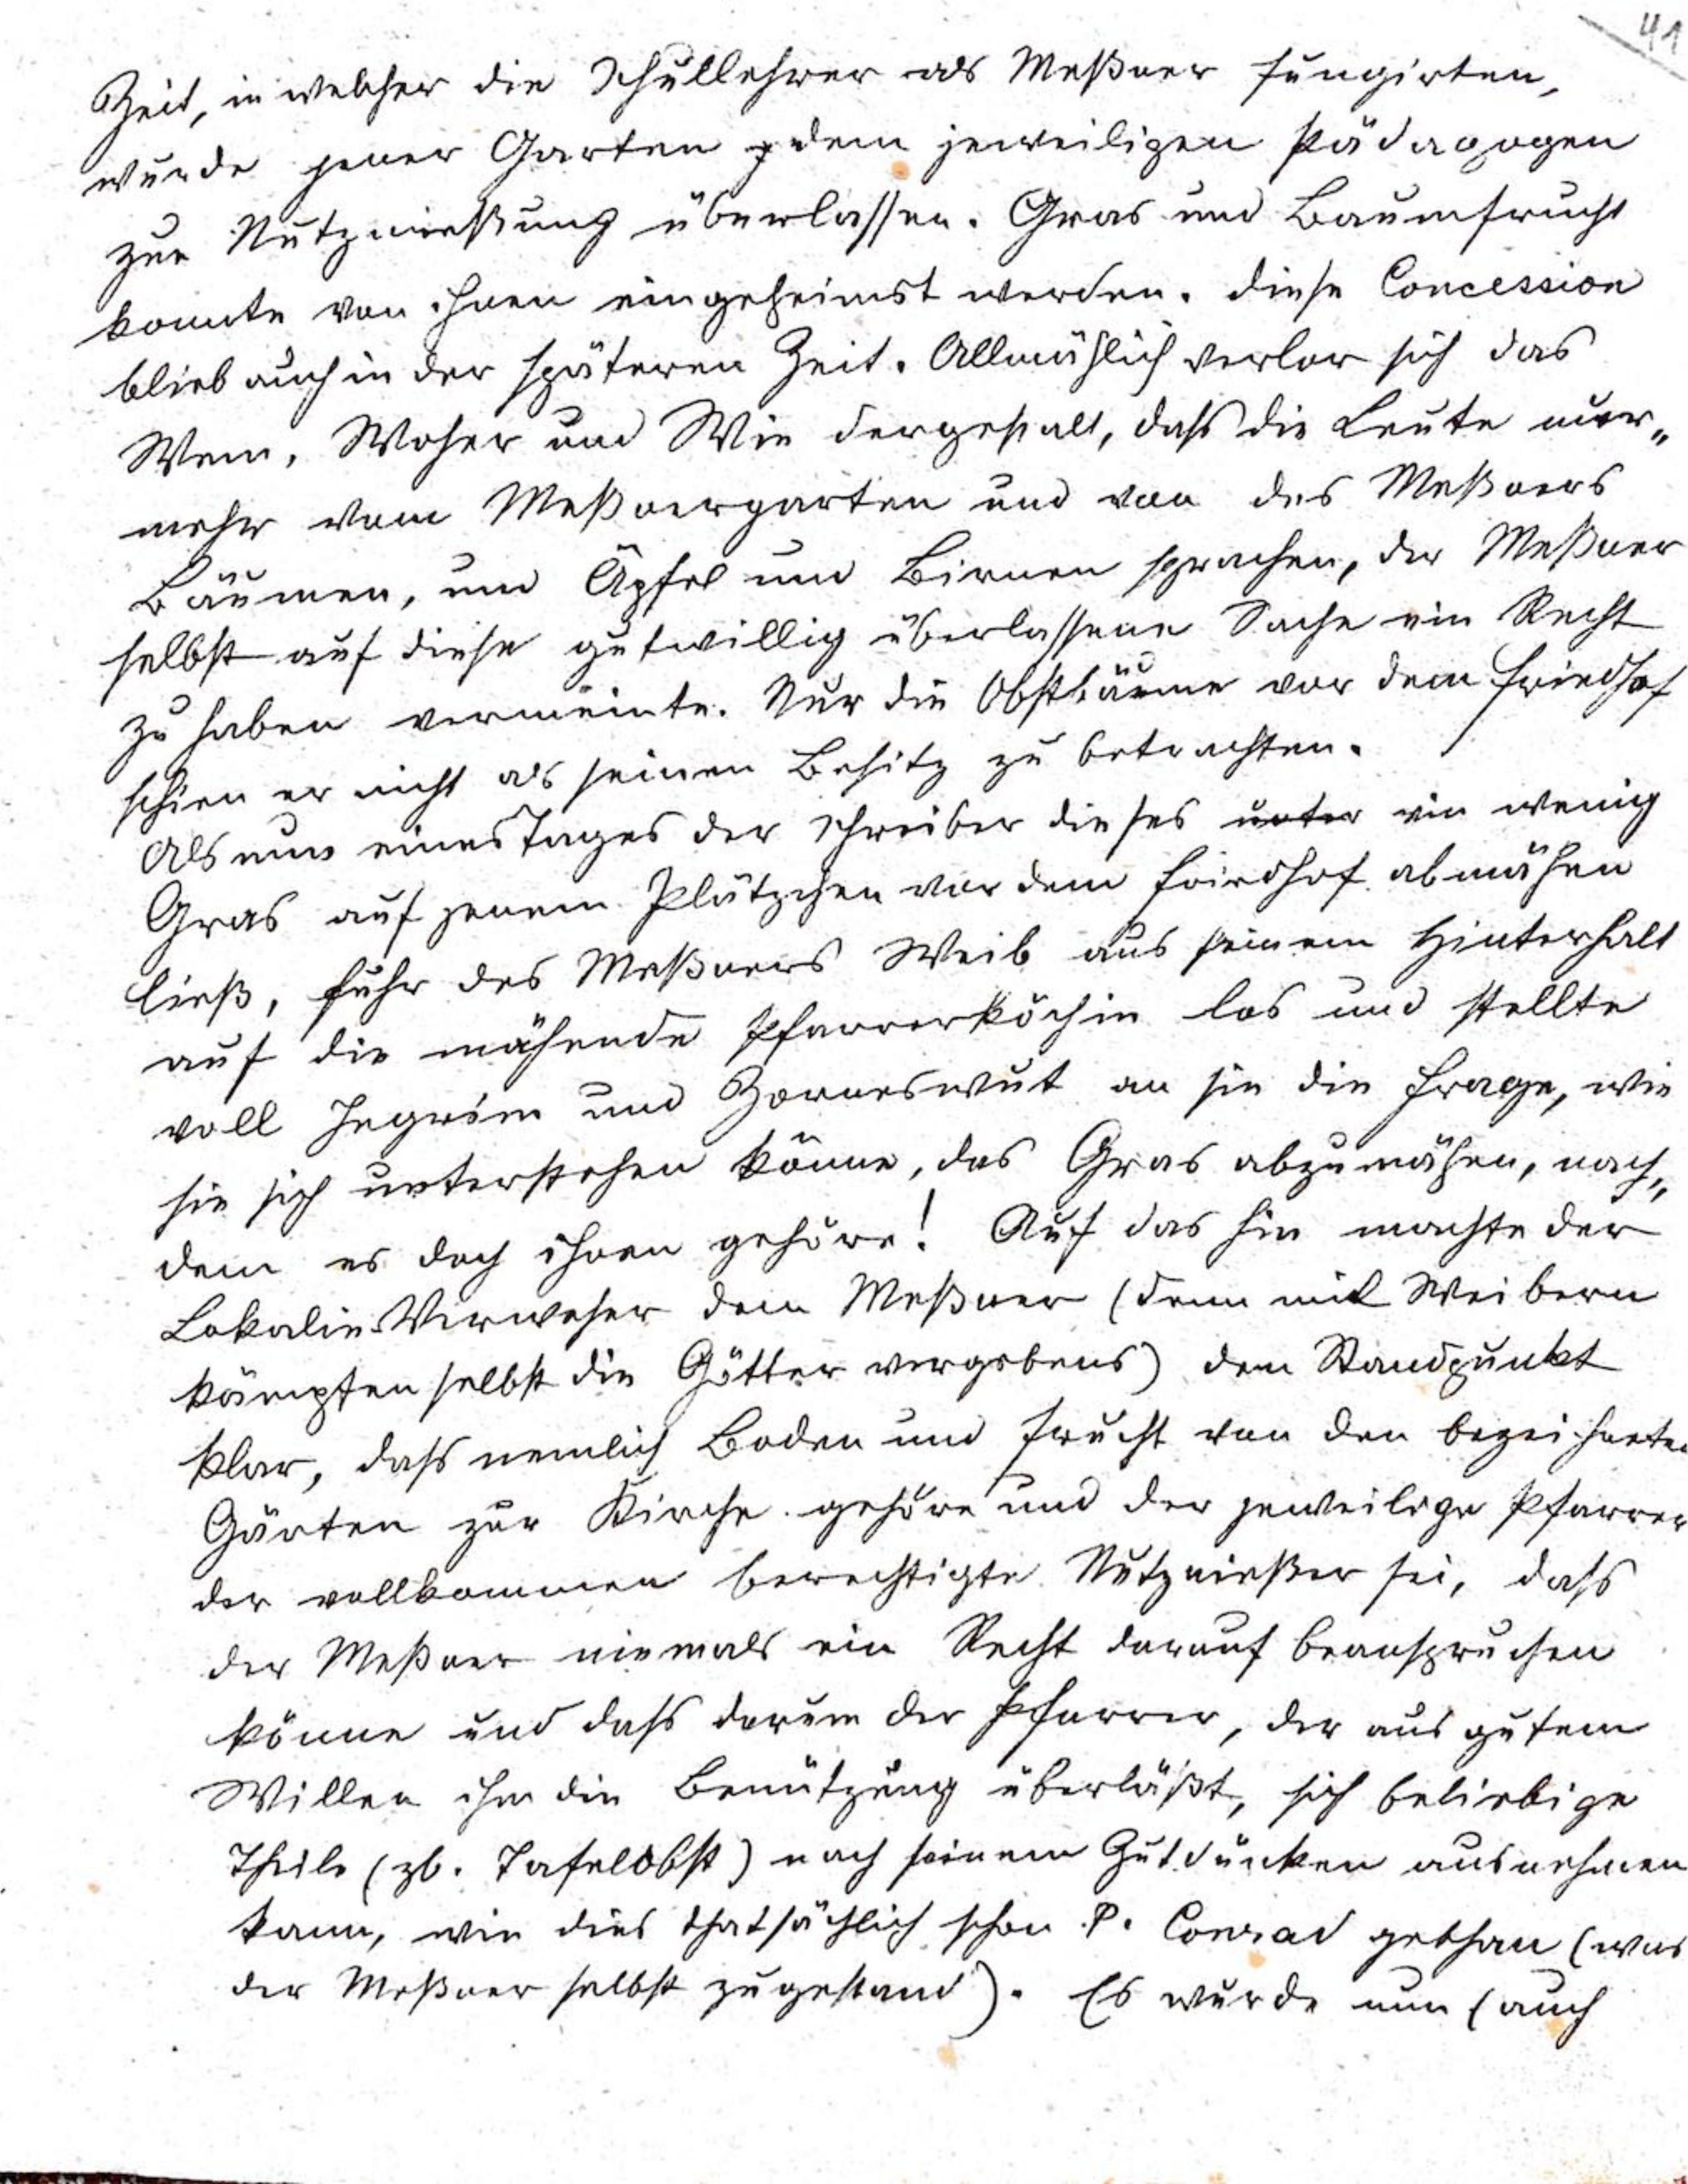 41
Zeit, in welcher die Schullehrer als Meßner fungirten,
wurde jener Garten dem jeweiligen Pädagogen
zur Nutznießung überlassen. Gras und Baumfrucht
konnte von ihnen eingeheimst werden. Diese Concession
blieb auch in der späteren Zeit. Allmählich verlor sich das
Wem, Woher und Wie dergestalt, dass die Leute nur„
mehr vom Meßnergarten und von des Meßners
Bäumen, und Äpfel und Birnen sprachen, der Meßner
selbst auf diese gutwillig überlassene Sache ein Recht
zu haben vermeinte. Nur die Obstbäume vor dem Friedhof
schien er nicht als seinen Besitz zu betrachten.
Als nun eines Tages der Schreiber dieses unter ein wenig
Gras auf jenem Plätzchen vor dem Friedhof abmähen
ließ, fuhr des Meßners Weib aus seinem Hinterhalt
auf die mähende Pfarrerköchin los und stellte
voll Ingrim und Zorneswut an sie die Frage, wie
sie sich unterstehen könne, das Gras abzumähen, nach„
dem es doch ihnen gehöre! Auf das hin machte der
Lokalie-Verweser dem Meßner (denn mit Weibern
kämpften selbst die Götter vergebens) den Standpunkt
klar, dass nemlich Boden und Frucht von den bezeichneten
Gärten zur Kirche gehöre und der jeweilige Pfarrer
der vollkommen berechtigte Nutznießer sei, dass
der Meßner niemals ein Recht darauf beanspruchen
könne und dass darum der Pfarrer, der aus gutem
Willen ihm die Benützung überläßt, sich beliebige
Theile (zb. Tafelobst) nach seinem Gutdünken ausnehmen
kann, wie dies thatsächlich schon P. Conrad gethan (was
der Meßner selbst zugestand). Es wurde nun (auch